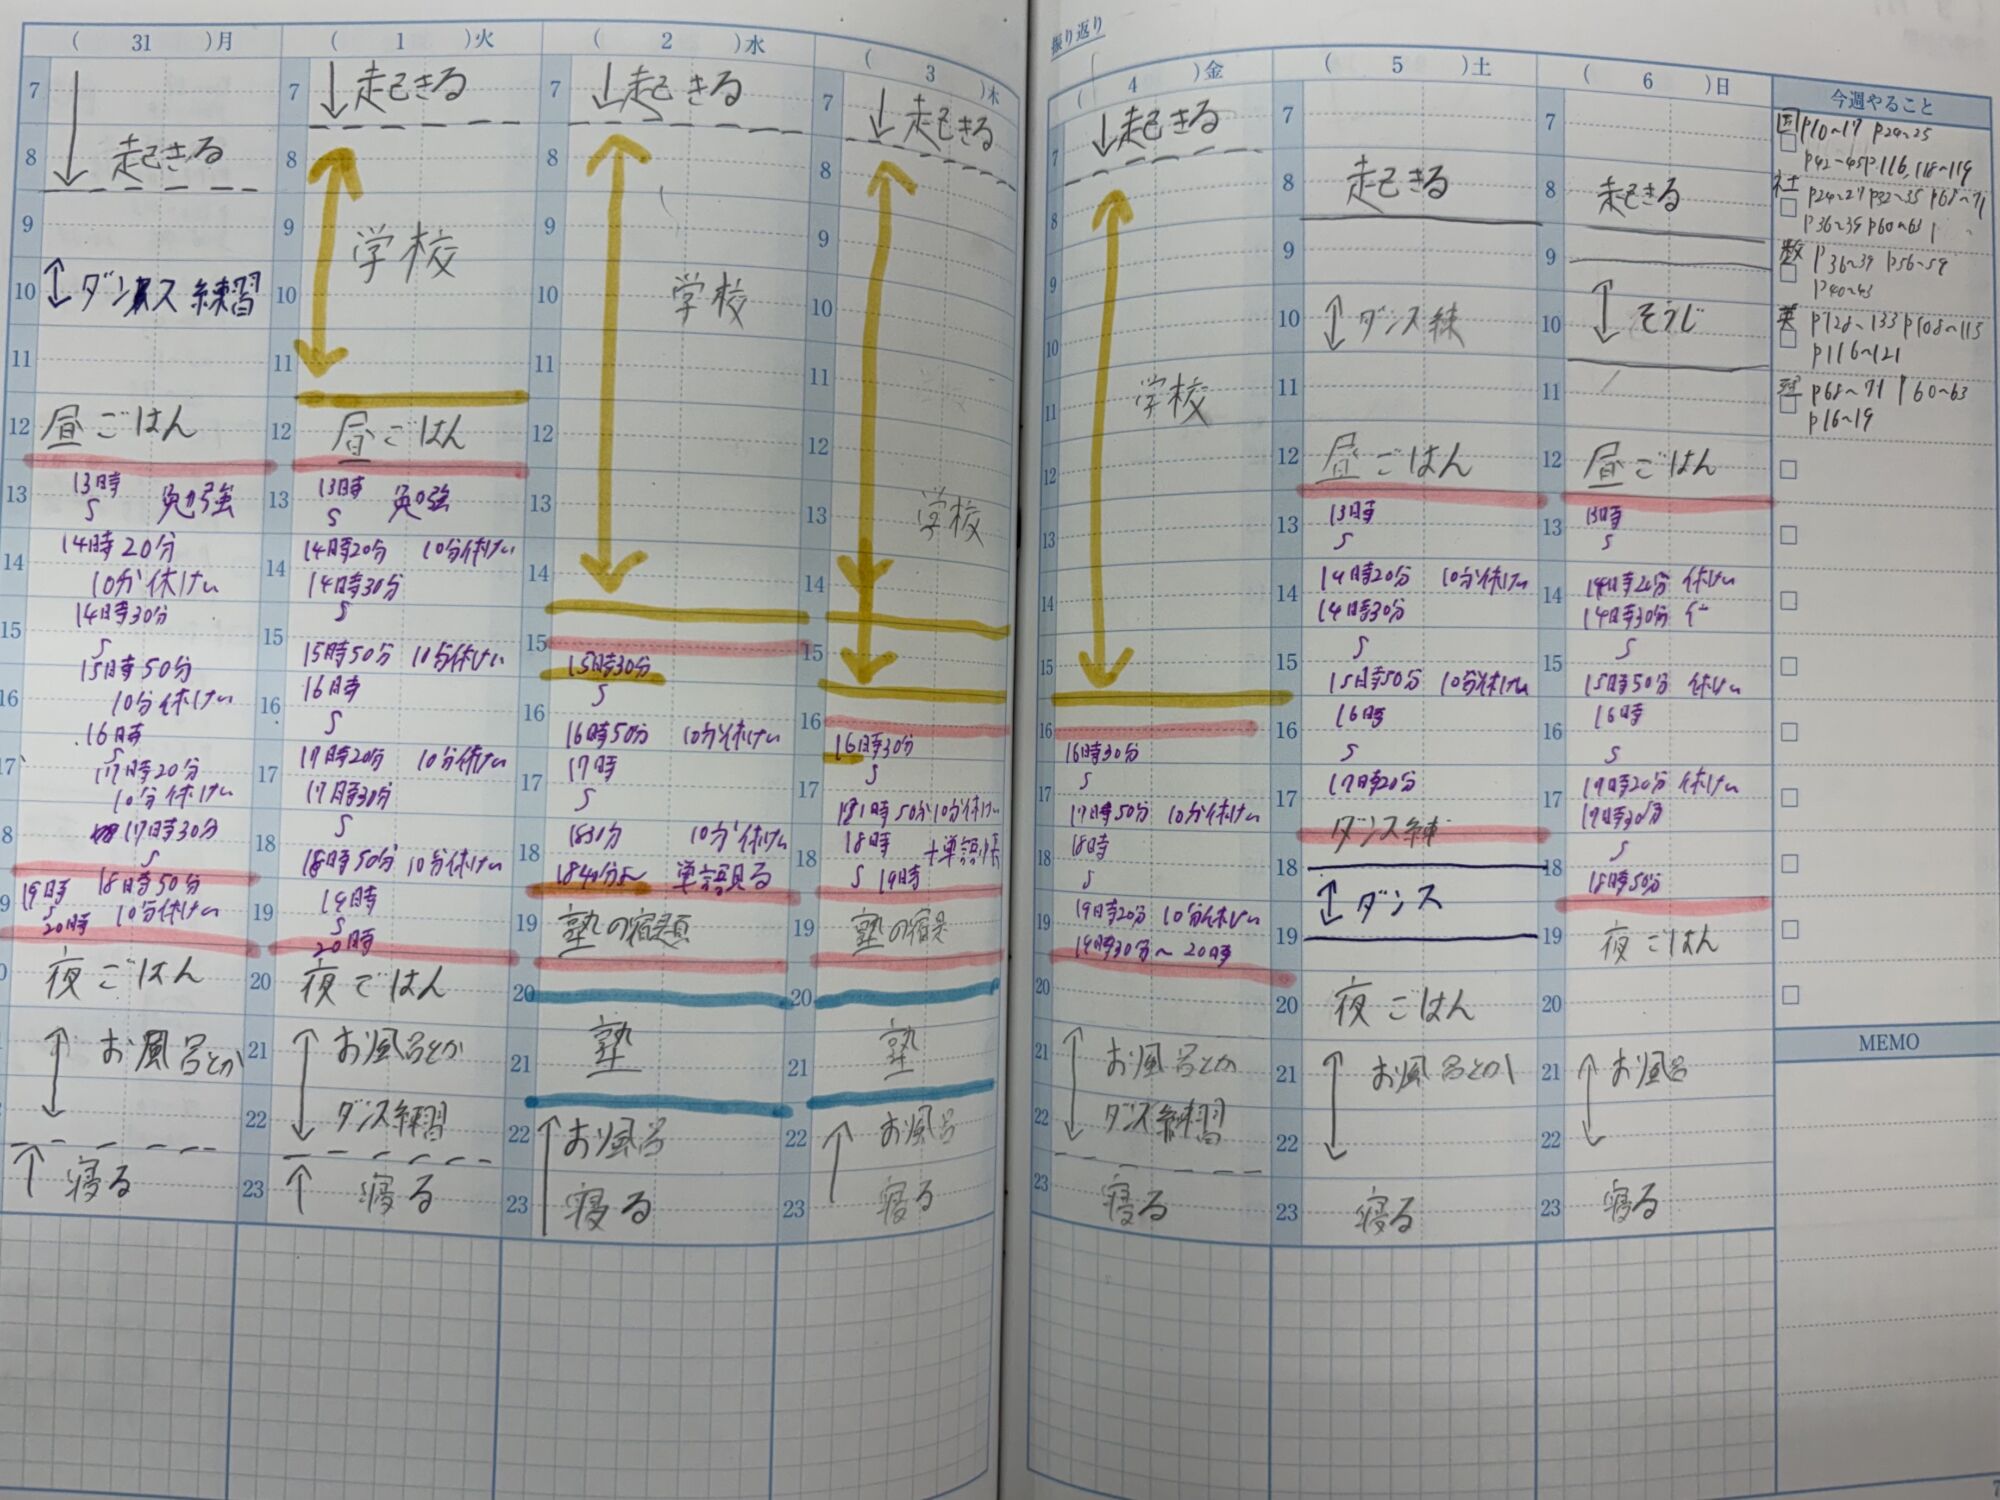 ( 31 )月
7
8
起きる
9
10
ダンス練習
11
12
昼ごはん
13
13時
勉強
S
14時20分
14
10分休けい
14時30分
15
S
15時50分
16
10分休けい
16時
S
17
17時20分
10分休けい
17時30分
S
18時50分
19時
10分休けい
S
20時
夜ごはん
お風呂とか
寝る
( 1 )火
7
起きる
8
9
学校
10
11
12
昼ごはん
13
13時 勉強
S
14
14時20分 10分休けい
14時30分
S
15
15時50分 10分休けい
16時
16
S
17
17時20分 10分休けい
17時30分
S
18
18時50分 10分休けい
19時
19
S
20時
20
夜ごはん
21
お風呂とか
22
ダンス練習
23
寝る
( 2 )水
7
起きる
8
9
10
学校
11
12
13
14
15
15時30分
S
16
16時50分 10分休けい
17時
17
S
1830分 10分休けい
18
1840分〜 単語見る
19
塾の宿題
20
21
塾
22
お風呂
23
寝る
( 3 )木
7
起きる
8
9
10
11
12
13
学校
14
15
16
16時30分
S
17
50分10分休けい
18時
18
S 19時
19
塾の宿
20
21
塾
22
お風呂
23
寝る
振り返り
( 4 )金
7
起きる
8
9
10
11
学校
12
13
14
15
16
16時30分
S
17
17時50分 10分休けい
18時
18
S
19
19時20分 10分休けい
19時30分〜20時
20
21
お風呂とか
22
ダンス練習
23
寝る
( 5 )土
7
8
起きる
9
10
ダンス練
11
12
昼ごはん
13
13時
S
14
14時20分 10分休けい
14時30分
S
15
15時50分 10分休けい
16
16時
S
17
17時20分
ダンス練
18
ダンス
19
20
夜ごはん
21
お風呂とか
22
23
寝る
( 6 )日
7
8
起きる
9
10
そうじ
11
12
昼ごはん
13
13時
S
14
14時20分 休けい
14時30分
S
15
15時50分 休けい
16
16時
S
17
20分 休けい
S
18
18時50分
19
夜ごはん
20
21
お風呂
22
23
寝る
今週やること
国 p10~17 p24~25
p42~45 p.116,118~119
社 p24~27 p32~35 p68~71
p36~39 p60~63
数 p36~39 p56~59
p40~43
英 p128~133 p108~115
p116~121
理 p68~71 p60~63
p16~19
MEMO